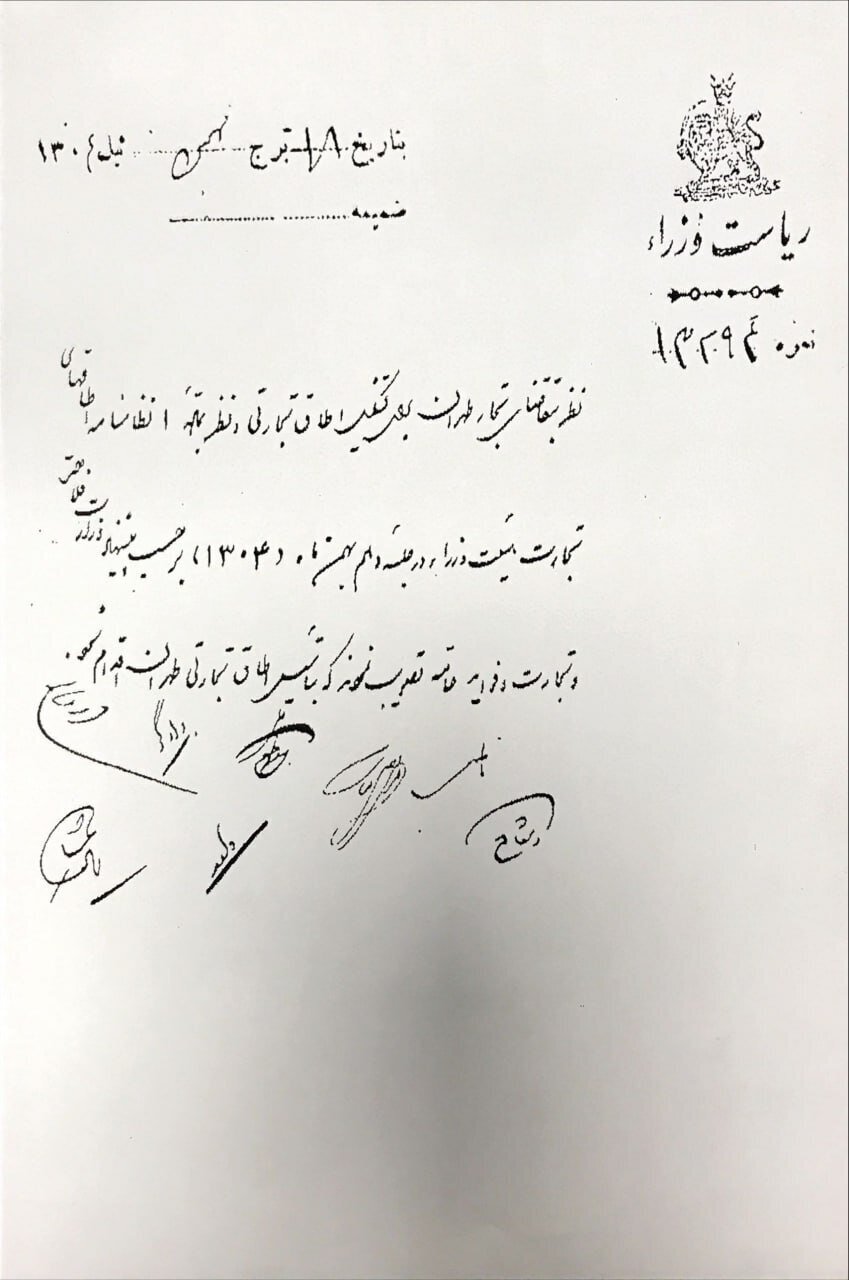 ریاست وزراء
بتاریخ ۱۸ برج بهمن ئیل ۱۳۰۴
ضمیمه
نمره ۱۳۲۹۴
نظر بتقاضای تجار طهران برای تشکیل اطاق تجارتی و نظر بماده ۱ نظامنامه اطاقهای
تجارت هیئت وزراء در جلسه دهم بهمن ماه (۱۳۰۴) بر حسب پیشنهاد وزارت فلاحت
و تجارت و فواید عامه تصویب نمودند که بتأسیس اطاق تجارتی طهران اقدام شود.